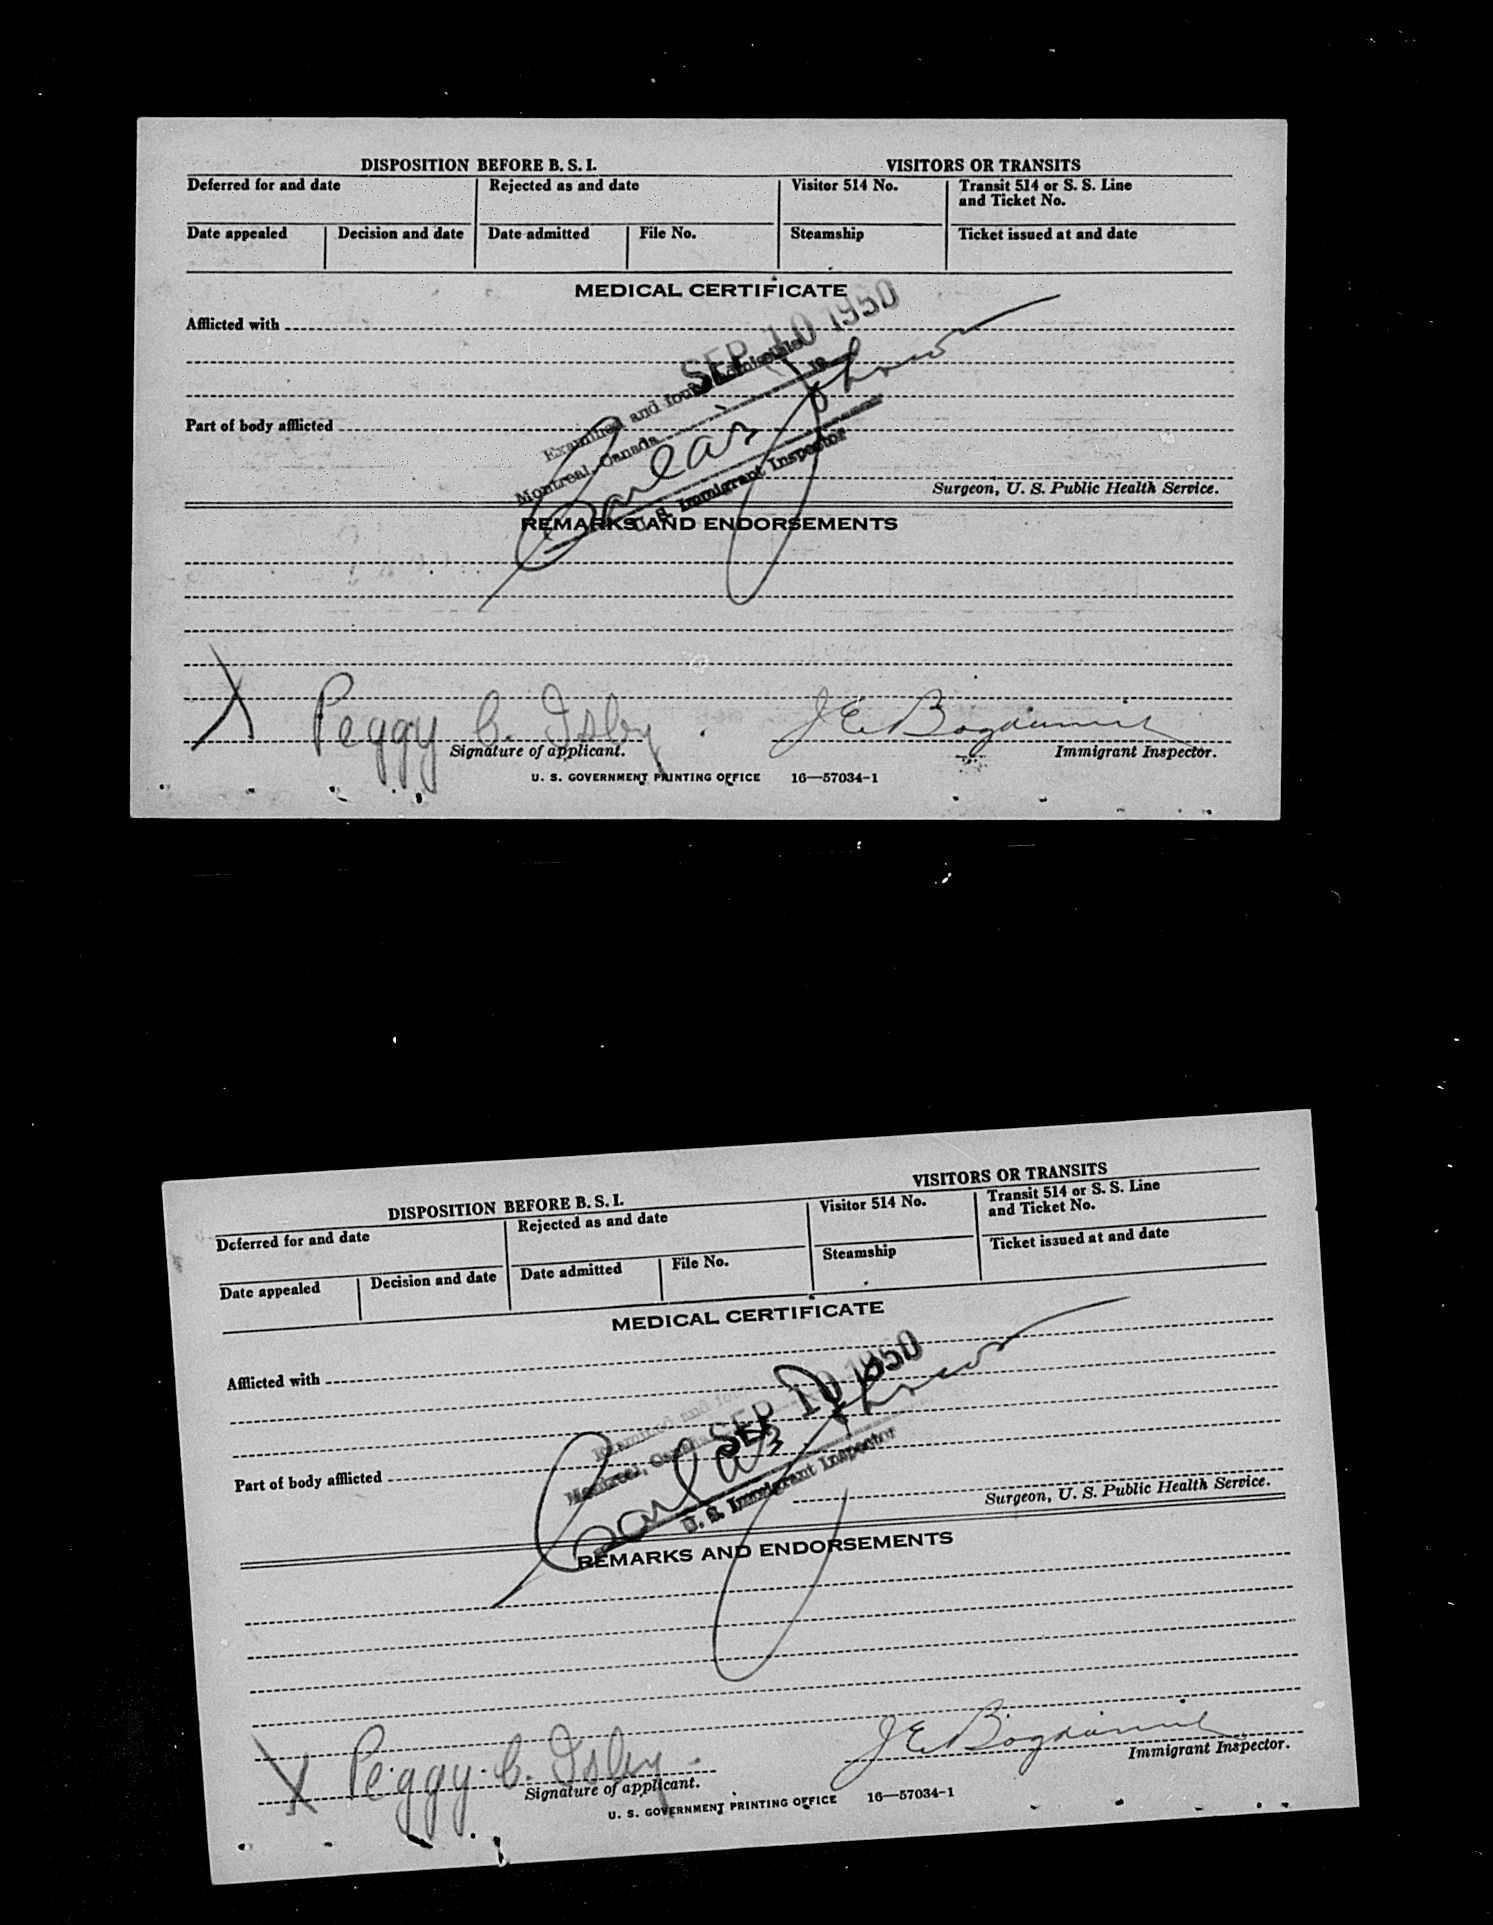 DISPOSITION BEFORE B. S. I.
VISITORS OR TRANSITS
Deferred for and date
Rejected as and date
Visitor 514 No.
Transit 514 or S. S. Line
and Ticket No.
Date appealed
Decision and date
Date admitted
File No.
Steamship
Ticket issued at and date
MEDICAL CERTIFICATE
SEP 10 1950
Afflicted with
Examined and found admissible
Montreal, Canada 19
Part of body afflicted
U. S. Immigrant Inspector
Surgeon, U. S. Public Health Service.
REMARKS AND ENDORSEMENTS
X Peggy C. Isby.
J E
Signature of applicant.
Immigrant Inspector.
U. S. GOVERNMENT PRINTING OFFICE 16—57034-1
DISPOSITION BEFORE B. S. I.
VISITORS OR TRANSITS
Deferred for and date
Rejected as and date
Visitor 514 No.
Transit 514 or S. S. Line
and Ticket No.
Date appealed
Decision and date
Date admitted
File No.
Steamship
Ticket issued at and date
MEDICAL CERTIFICATE
SEP 10 1950
Afflicted with
Examined and
Montreal, Canada
Part of body afflicted
U. S. Immigrant Inspector
Surgeon, U. S. Public Health Service.
REMARKS AND ENDORSEMENTS
X Peggy C. Isby.
J E
Signature of applicant.
Immigrant Inspector.
U. S. GOVERNMENT PRINTING OFFICE 16—57034-1